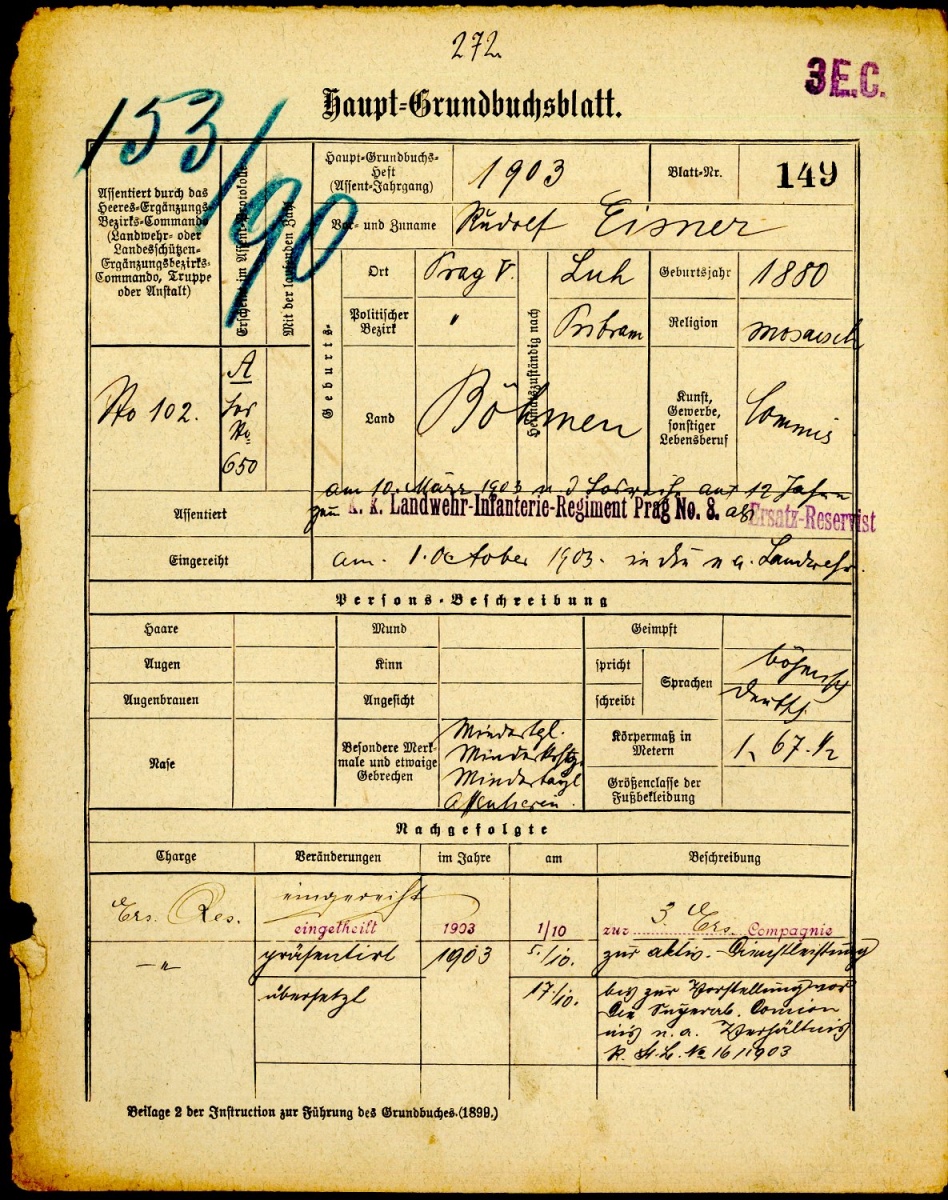 272.
3E.C.
153/90
Haupt-Grundbuchsblatt.
Assentiert durch das
Heeres-Ergänzungs-
Bezirks-Commando
(Landwehr- oder
Landesschützen-
Ergänzungsbezirks-
Commando, Truppe
oder Anstalt)
Mit der laufenden Zahl
Haupt-Grundbuchs-
Heft
(Assent-Jahrgang)
1903
Blatt-Nr.
149
Vor- und Zuname
Rudolf Eisner
Geburts-
Ort
Prag V.
Heimatszuständig nach
Luh
Geburtsjahr
1880
Politischer
Bezirk
"
Pribram
Religion
mosaisch
Land
Böhmen
Kunst,
Gewerbe,
sonstiger
Lebensberuf
Commis
No 102.
A
No
650
Assentiert
am 10. März 1903 auf 12 Jahre
zum k. k. Landwehr-Infanterie-Regiment Prag No. 8. als Ersatz-Reservist
Eingereiht
am 1. October 1903. in die n. a. Landwehr.
Persons-Beschreibung
Haare
Mund
Geimpft
Augen
Kinn
spricht
Sprachen
böhmisch
Augenbrauen
Angesicht
schreibt
deutsch
Nase
Besondere Merk-
male und etwaige
Gebrechen
Körpermaß in
Metern
1, 67. 1/2
Größenclasse der
Fußbekleidung
Nachgefolgte
Charge
Veränderungen
im Jahre
am
Beschreibung
Ers. Res.
eingereiht
eingetheilt
1903
1/10
zur 3. Ers. Compagnie
–"–
präsentirt
1903
5./10.
zur aktiv. Dienstleistung
übersetzt
17/10.
bis zur Vorstellung vor
die Superarb.
ins n. a. Verhältnis
No 16/1903
Beilage 2 der Instruction zur Führung des Grundbuches.(1899.)